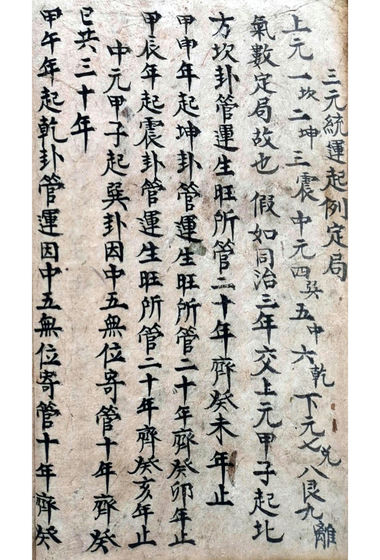 三元統運起例定局
上元一坎二坤三震中元四巽五中六乾下元七兑八艮九離
氣數定局故也 假如同治三年交上元甲子起北
方坎卦管運生旺所管二十年齊癸未年止
甲申年起坤卦管運生旺所管二十年齊癸卯年止
甲辰年起震卦管運生旺所管二十年齊癸亥年止
中元甲子起巽卦因中五無位寄管十年齊癸
巳共三十年
甲午年起乾卦管運因中五無位寄管十年齊癸